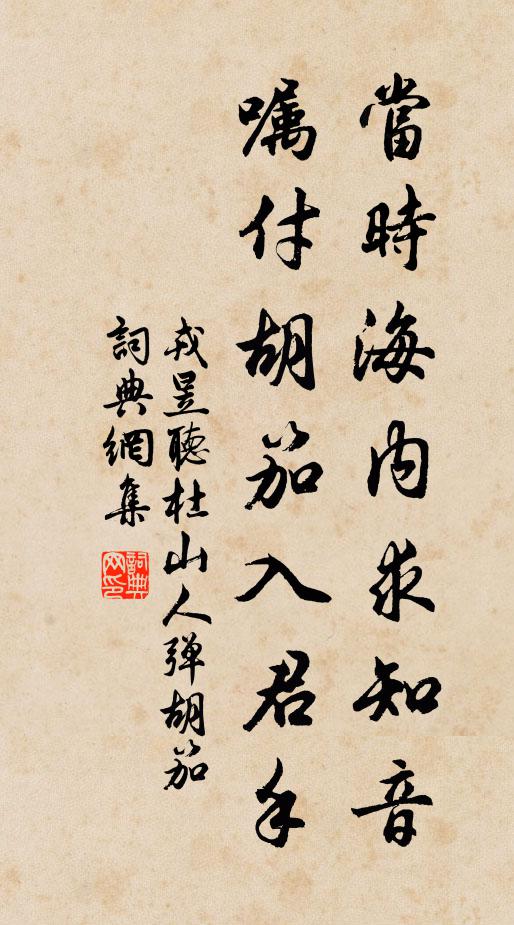 當時海内求知音
嘱付胡笳入君手
戎昱聽杜山人彈胡笳
詞典網集
詞典網印